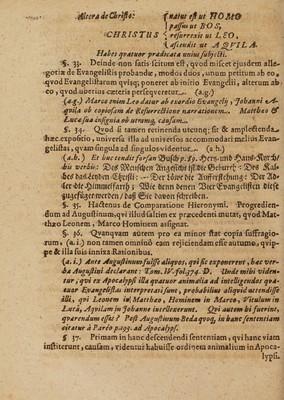 Altera de Christo:
natus est ut HOMO
passus ut BOS,
CHRISTUS
resurrexit ut LEO,
ascendit ut AQVILA.
Habes quatuor prædicata unius subjecti.
§. 33. Deinde non satis scitum est, quod miscet ejusdem allegoriæ de Evangelistis probandæ, modos duos, unum petitum ab eo, quod Evangelistarum quisq; poneret ab initio Evangelii, alterum ab eo, quod uberius cæteris persequeretur. (a.g.)
(a.g.) Marco enim Leo datur ab exordio Evangelij, Johanni Aquila ob copiosam de Resurrectione narrationem. Matthæo &
Lucæ sua insignia ob utramq; causam.
§. 34. Quod si tamen retinenda utcunq; sit & amplectenda hæc expositio, universa illa ad universos accommodari melius Evangelistas, quam singula ad singulos videntur. (a.h.)
(a.h.) Et huc tendit forsan
verbis: Des Menschen Angesicht ist die Geburt: Des
des Leyden Christi: Der Löwe die Aufferstehung: Der
die Himmelfarth; Wie denn denen Vier Evangelisten diese
zugefüget werden, daß Sie davon schreiben.
§. 35. Hactenus de Comparatione Hieronymi. Progrediendum ad Augustinum, qui illud saltim ex præcedenti mutat, quod Matthæo Leonem, Marco Hominem assignat.
§. 36. Quanquam autem pro ea minor stat copia suffragiorum, (a.i.) non tamen omninò eam rejiciendam esse autumo, quippe & illa suis innixa Rationibus.
(a.i.) Ante Augustinum fuisse aliquos, qui sic exponerent, hæc verba Augustini declarant: Tom. IV. fol. 374. D. Unde mihi videntur, qui ex Apocalypsi illa quatuor animalia ad intelligendos quatuor Evangelistas interpretati sunt, probabilius aliquid attendisse illi, qui Leonem in Matthæo, Hominem in Marco, Vitulum in Luca, Aquilam in Johanne intellexerunt. Qui autem bi fuerint, quærendum esset? Post Augustinum Beda quoq; in hanc sententiam citatur à Pareo p. ad Apocalyps.
§ 37. Primam in hanc descendendi sententiam, qui hanc viam institerunt, causam, videntur habuisse ordinem animalium in Apocalypsi